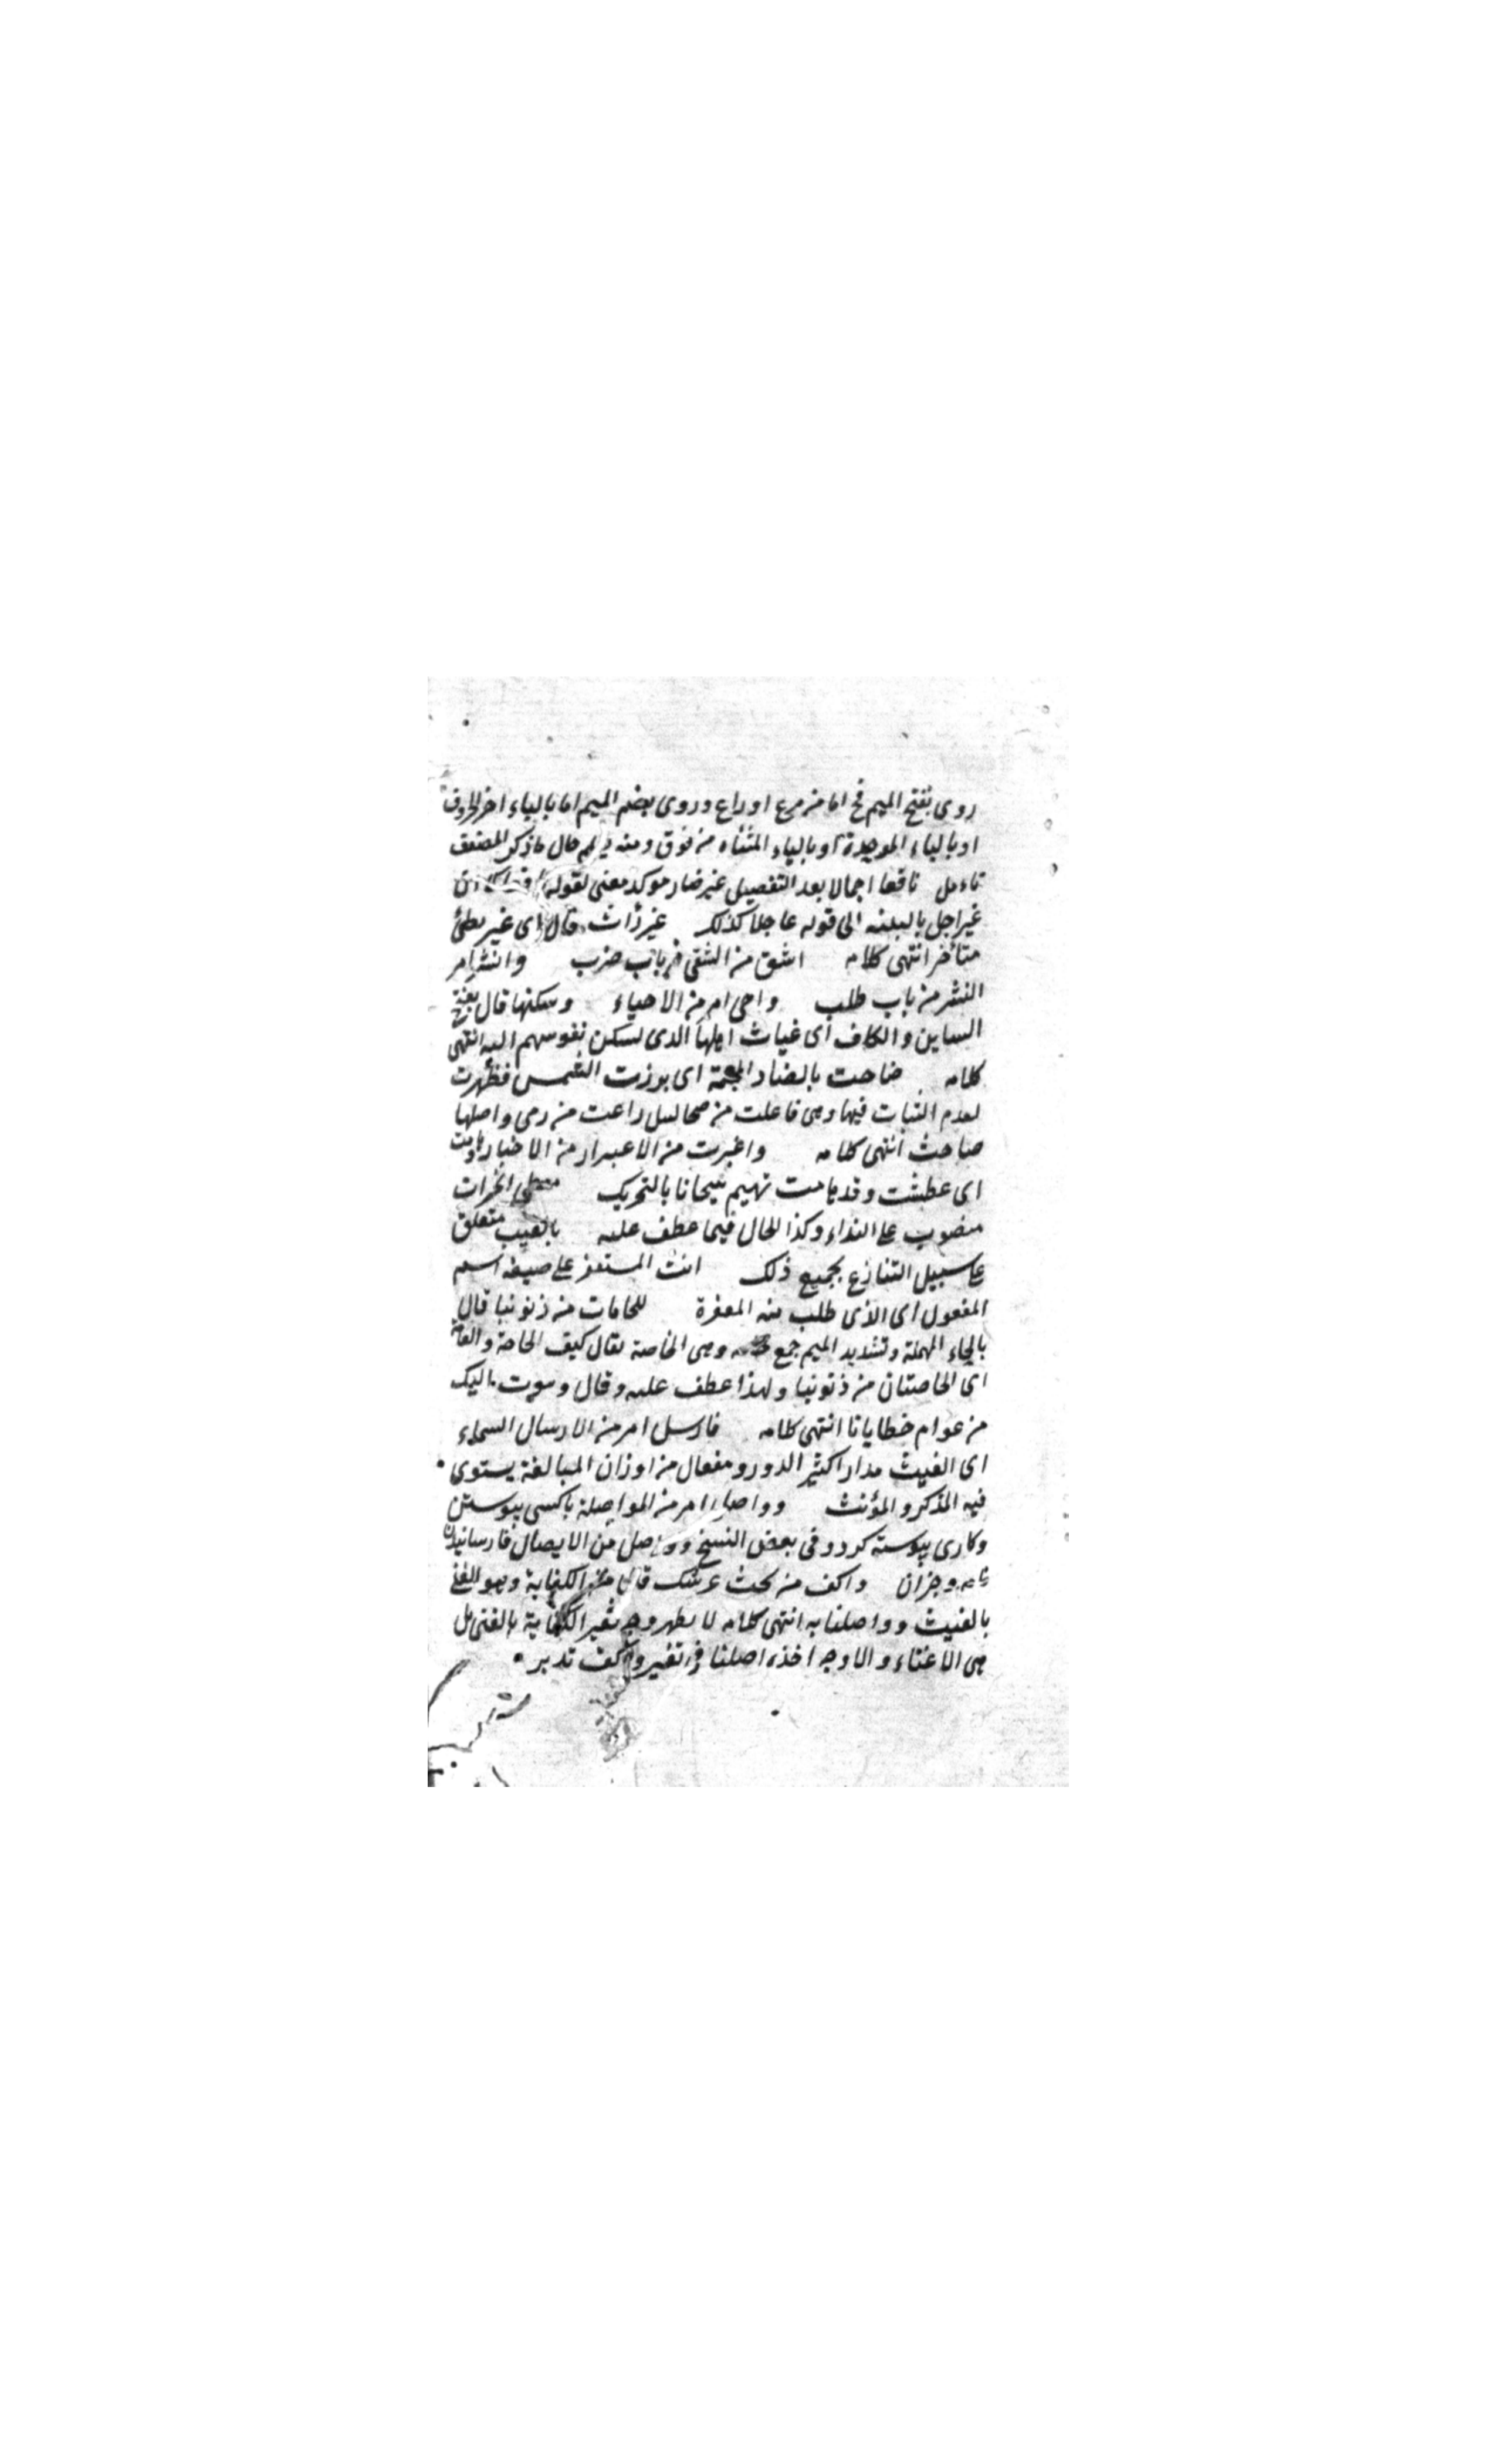 روى بفتح الميم فح اما من مرع اوراع وروى بضم الميم اما بالياء اخر الحروف
او بالباء الموحدة او بالياء المثناه من فوق ومنه حال ماذكر المصنف
تاءمل نافعا اجمالا بعد التفصيل غير ضار موكد معنى لقوله
غير اجل بالىىىه الى قوله عاجلا كذلك غير رائث قال اى غير بطئ
متأخر انتهى كلامه اشق من الشقى من باب ضرب وانشر امر
النشر من باب طلب واحى امر من الاحياء وسكنها قال بفتح
السين والكاف اى غياث اهلها الدى تسكن نفوسهم اليه انتهى
كلامه ضاحت بالضاد المعجمة اى بورزت الشمس فظهرت
لعدم النبات فيها وهى فاعلت من ضحا لىىل راعت من رمى واصلها
ضاحت انتهى كلامه واغبرت من الاغبرار من الاخبار هامت
اى عطشت وقد هامت تهيم هيمانا بالتحريك معطى الخيرات
منصوب على النداء وكذا الحال فيما عطف عليه بالغيث متعلق
على سبيل التنازع بجميع ذلك انت المستغفر على صيغه اسم
المفعول اى الذى طلب منه المغفرة للحامات من ذنوبنا قال
بالحاء المهملة وتشديد الميم جمع وهى الخاصة يقال كيف الحامة والعامة
اى الخاصتان من ذنوبنا ولهذا عطف عليه وقال ونتوب اليك
من عوام خطايانا انتهى كلامه فارسل امر من الارسال السماء
اى الغيث مدرارا كثير الدور ومفعال من اوزان المبالغة يستوى
فيه المذكر والمؤنث وواصل امر من المواصلة باكسى پيوستن
وكارى پيوسته كردد وفى بعض النسخ وواصل من الايصال فارسانيدن
نامه وجزان واكف من تحت عرشك قال من الكفاية وهو الغنى
بالغيث وواصلنا به انتهى كلامه لا يظهر وجه تفير الكفاية بالغنى بل
هى الاغناء والاوجه اخذه اصلنا فى تفير واكف تدبر